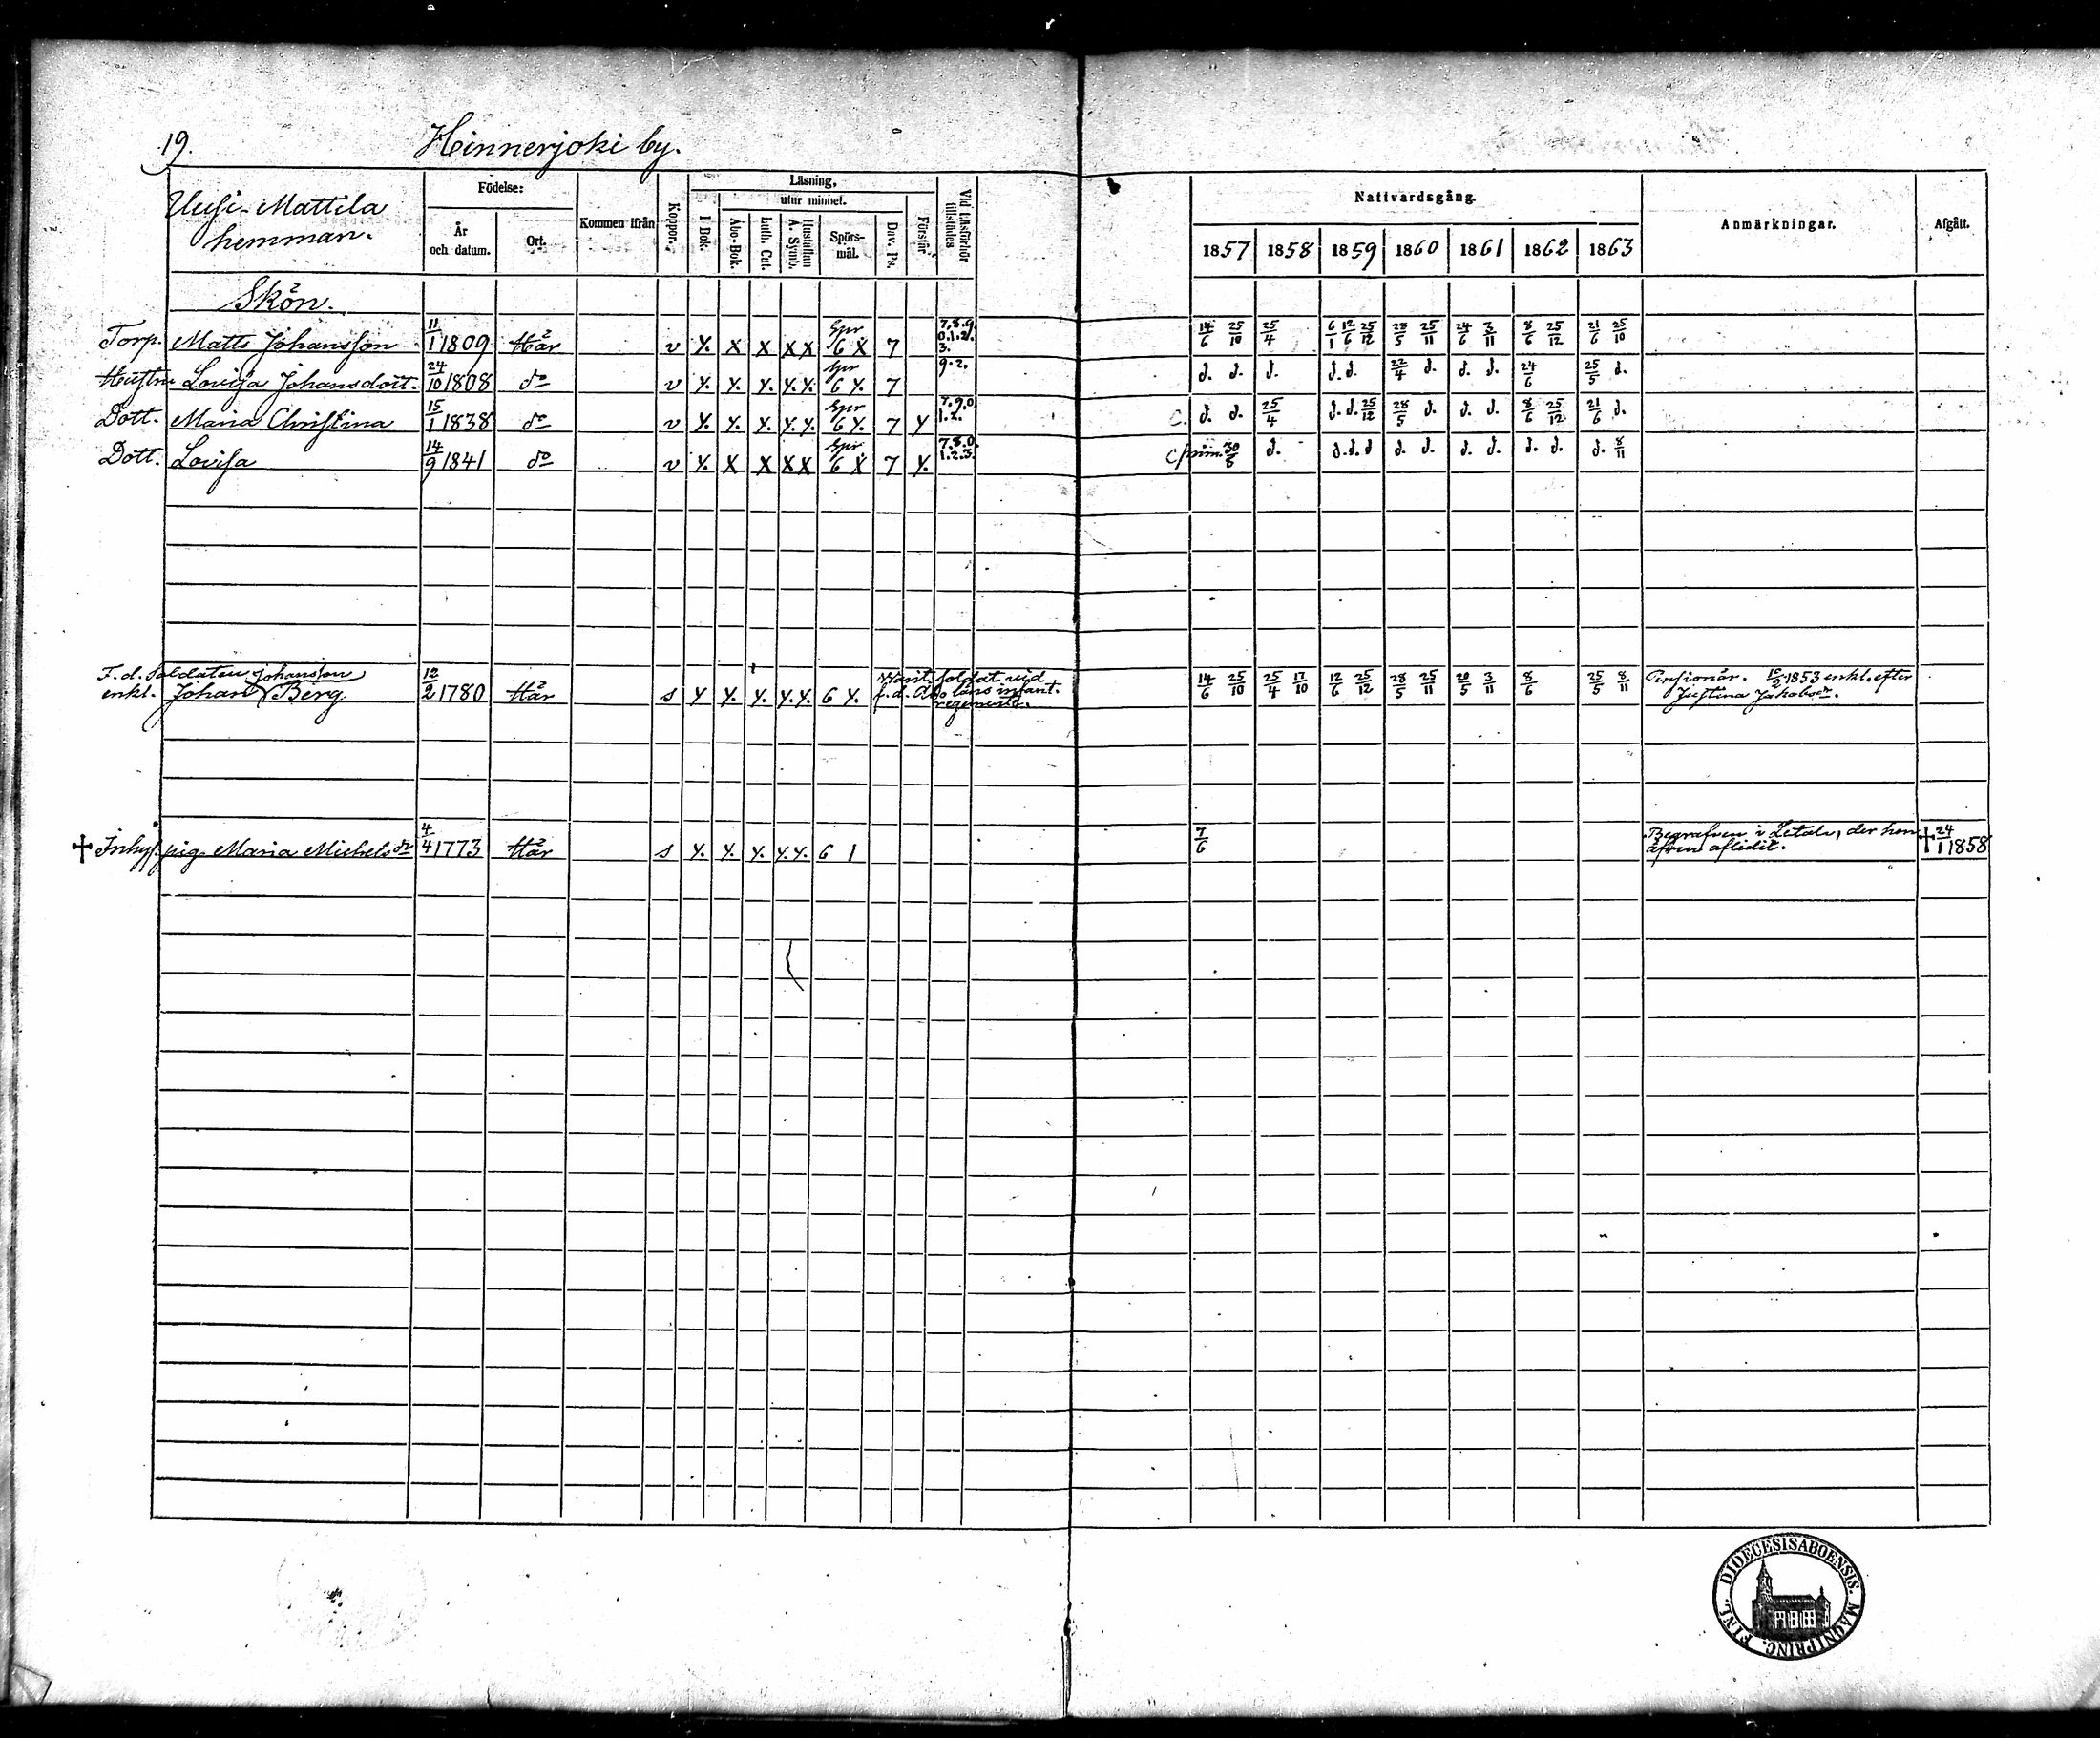 19. Hinnerjoki by.
Uusi-Mattila hemman.
Födelse:
År och datum.
Ort.
Kommen ifrån
Koppor.
Läsning,
utur minnet.
I Bok.
Åbo-Bok.
Luth. Cat.
Hustaflan A. Symb.
Spörsmål.
Dav. Ps.
Förstår
Vid Läsförhör tillstädes
Nattvardsgång.
1857 1858 1859 1860 1861 1862 1863
Anmärkningar.
Afgått.
Skön.
Torp. Matts Johansson 11/1 1809 Här v Y. X X X X Spr 6 X 7 7.8.9. 0.1.2. 3. 14/6 25/10 25/4 6/1 12/6 25/12 28/5 25/11 24/6 3/11 8/6 25/12 21/6 25/10
Hustru Lovisa Johansdott. 24/10 1808 do v Y. Y. Y. Y. Y. Spr 6 Y. 7 9.2. d. d. d. d. d. 22/4 d. d. d. 24/6 25/5 d.
Dott. Maria Christina 15/1 1838 do v Y. Y. Y. Y. Y. Spr 6 Y. 7 Y 7.9.0 1.2. C. d. d. 25/4 d. d. 25/12 28/5 d. d. d. 8/6 25/12 21/6 d.
Dott. Lovisa 14/9 1841 do v Y. X X X X Spr 6 X 7 Y. 7.8.0. 1.2.3. C prim. 30/8 d. d. d. d d. d. d. d. d. d. d. 8/11
F. d. Soldaten Johansson
enkl. Johan Berg 12/2 1780 Här s Y Y. Y. Y. Y. 6 Y. Varit soldat vid f. d. Åbo läns infant. regemente. 14/6 25/10 25/4 17/10 12/6 25/12 28/5 25/11 20/5 3/11 8/6 25/5 8/11 Pensionär. 1853 enkl. efter Justina Jakobsdr.
† Inhys. pig. Maria Michelsdr 4/4 1773 Här s Y. Y. Y. Y. Y. 6 1 7/6 Begrafven i Letala, der hon äfven aflidit. † 24/1 1858
DIOECESIS ABOENSIS. MAGNI PRINC. FINL.